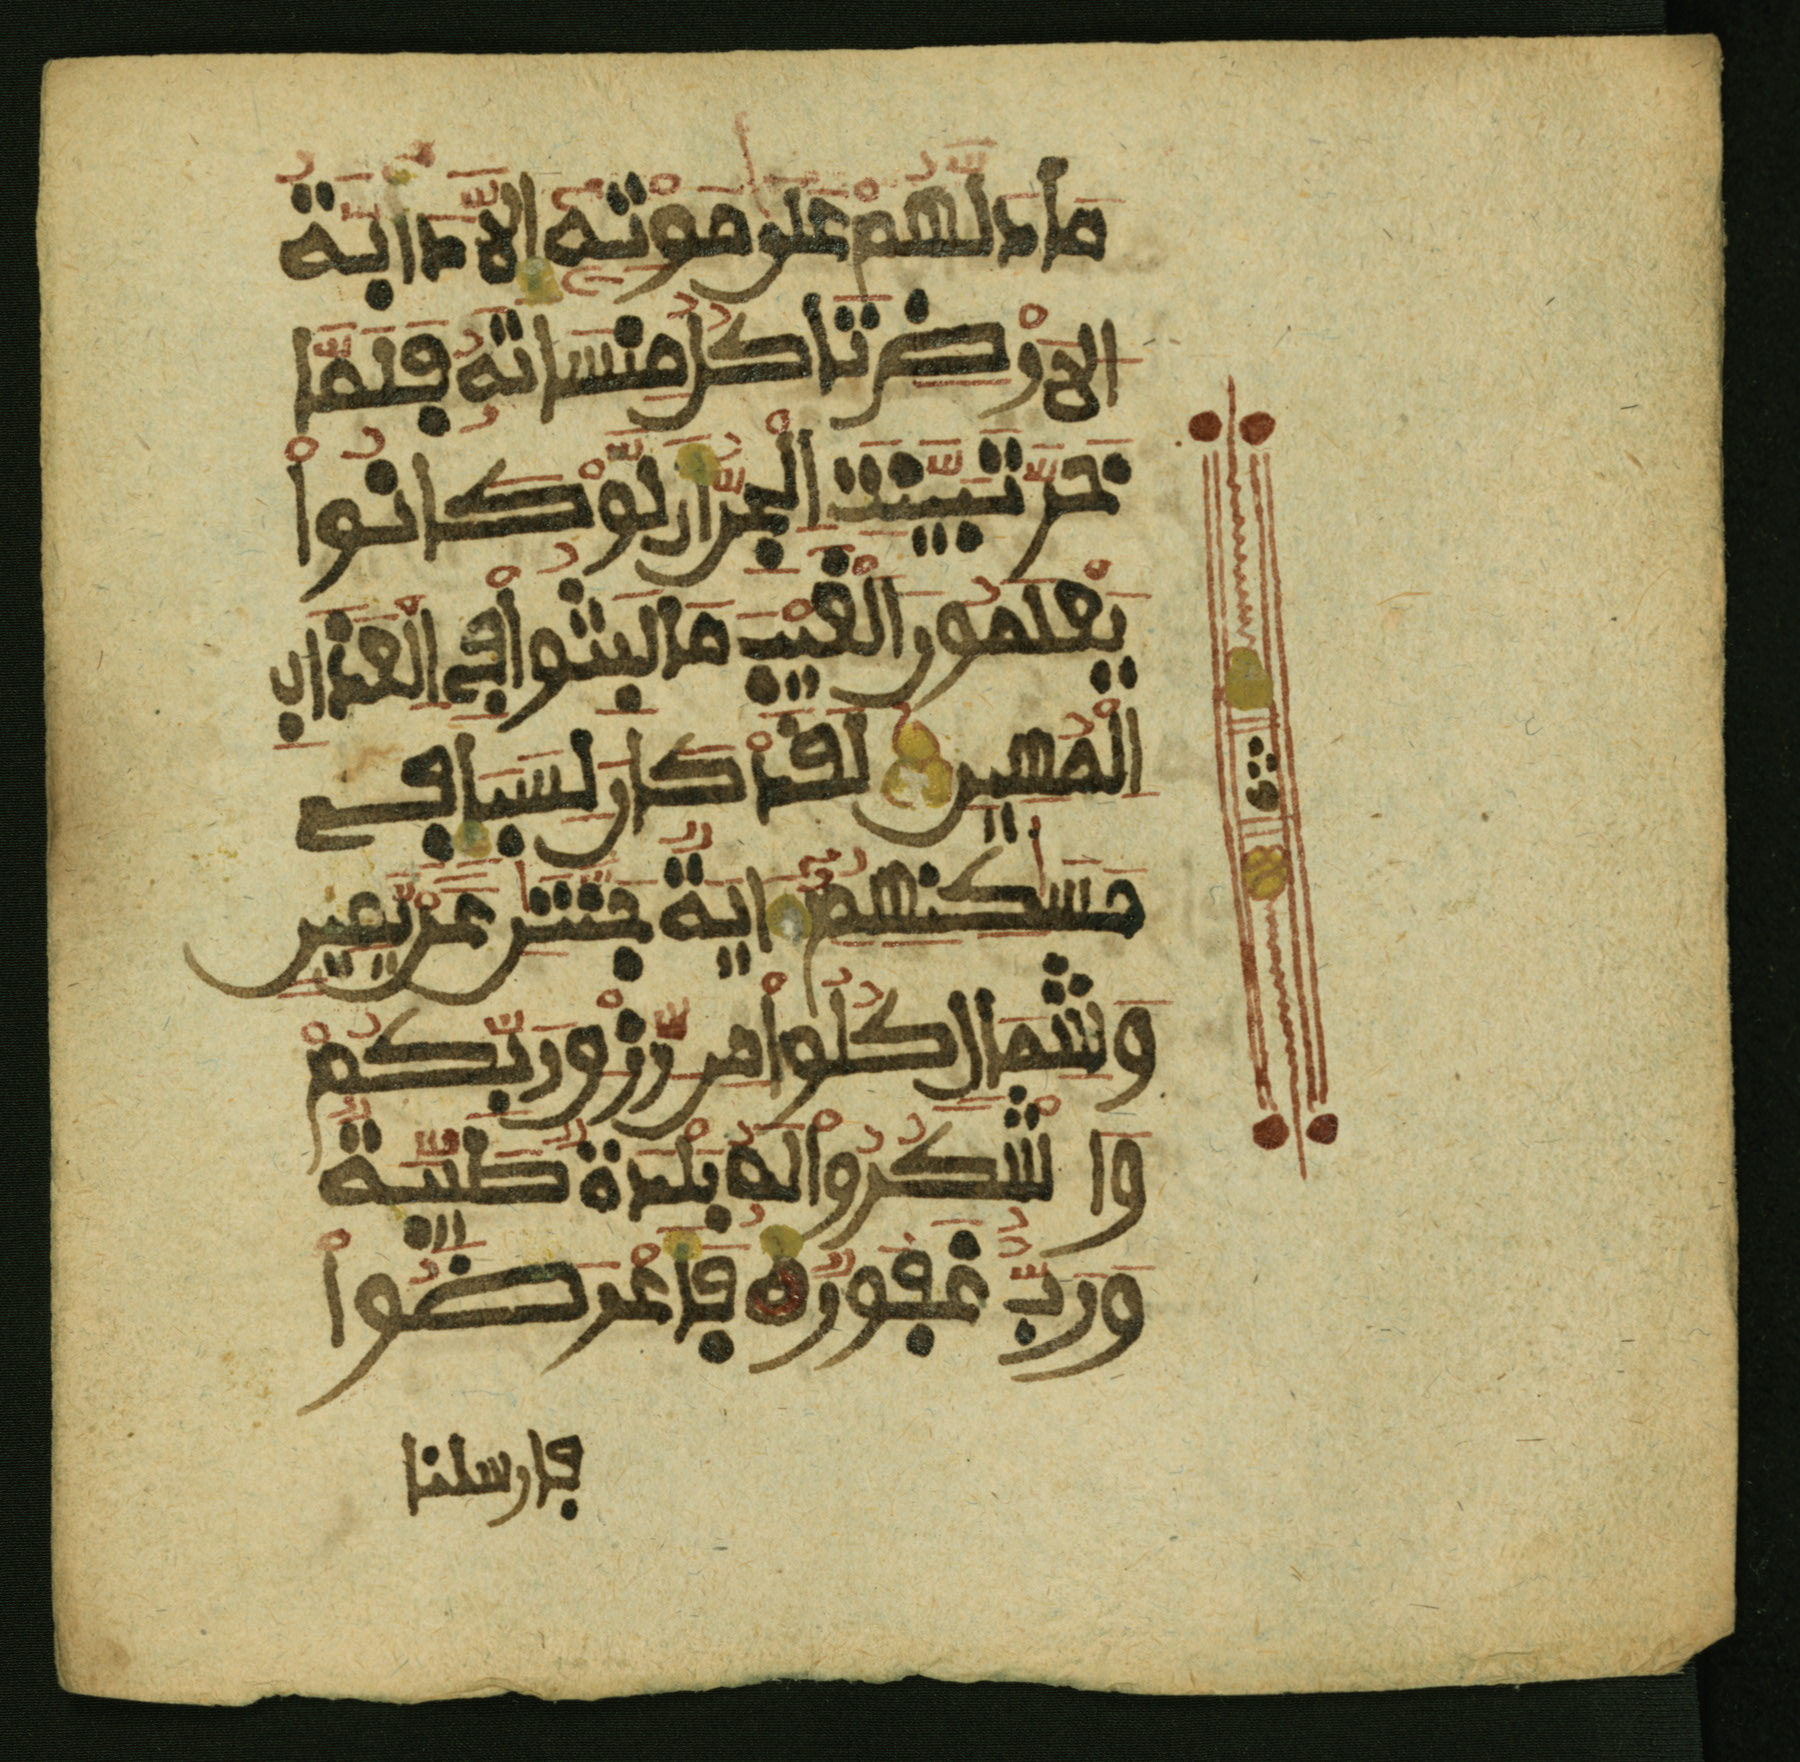 مَا دَلَّهُمْ عَلَىٰ مَوْتِهِۦٓ إِلَّا دَآبَّةُ
الَارْضِ تَاكُلُ مِنسَاتَهُۥ فَلَمَّا
خَرَّ تَبَيَّنَتِ الْجِنُّ أَن لَّوْ كَانُواْ
يَعْلَمُونَ الْغَيْبَ مَا لَبِثُواْ فِي الْعَذَابِ
الْمُهِينِ لَقَدْ كَانَ لِسَبَإٍ فِي
مَسَٰكِنِهِمُۥٓ ءَايَةٌ جَنَّتَٰنِ عَنْ يَّمِينٍ
وَشِمَالٍ كُلُواْ مِن رِّزْقِ رَبِّكُمْ
وَاشْكُرُواْ لَهُۥ بَلْدَةٌ طَيِّبَةٌ
وَرَبٌّ غَفُورٌ فَأَعْرَضُواْ
فارسلنا